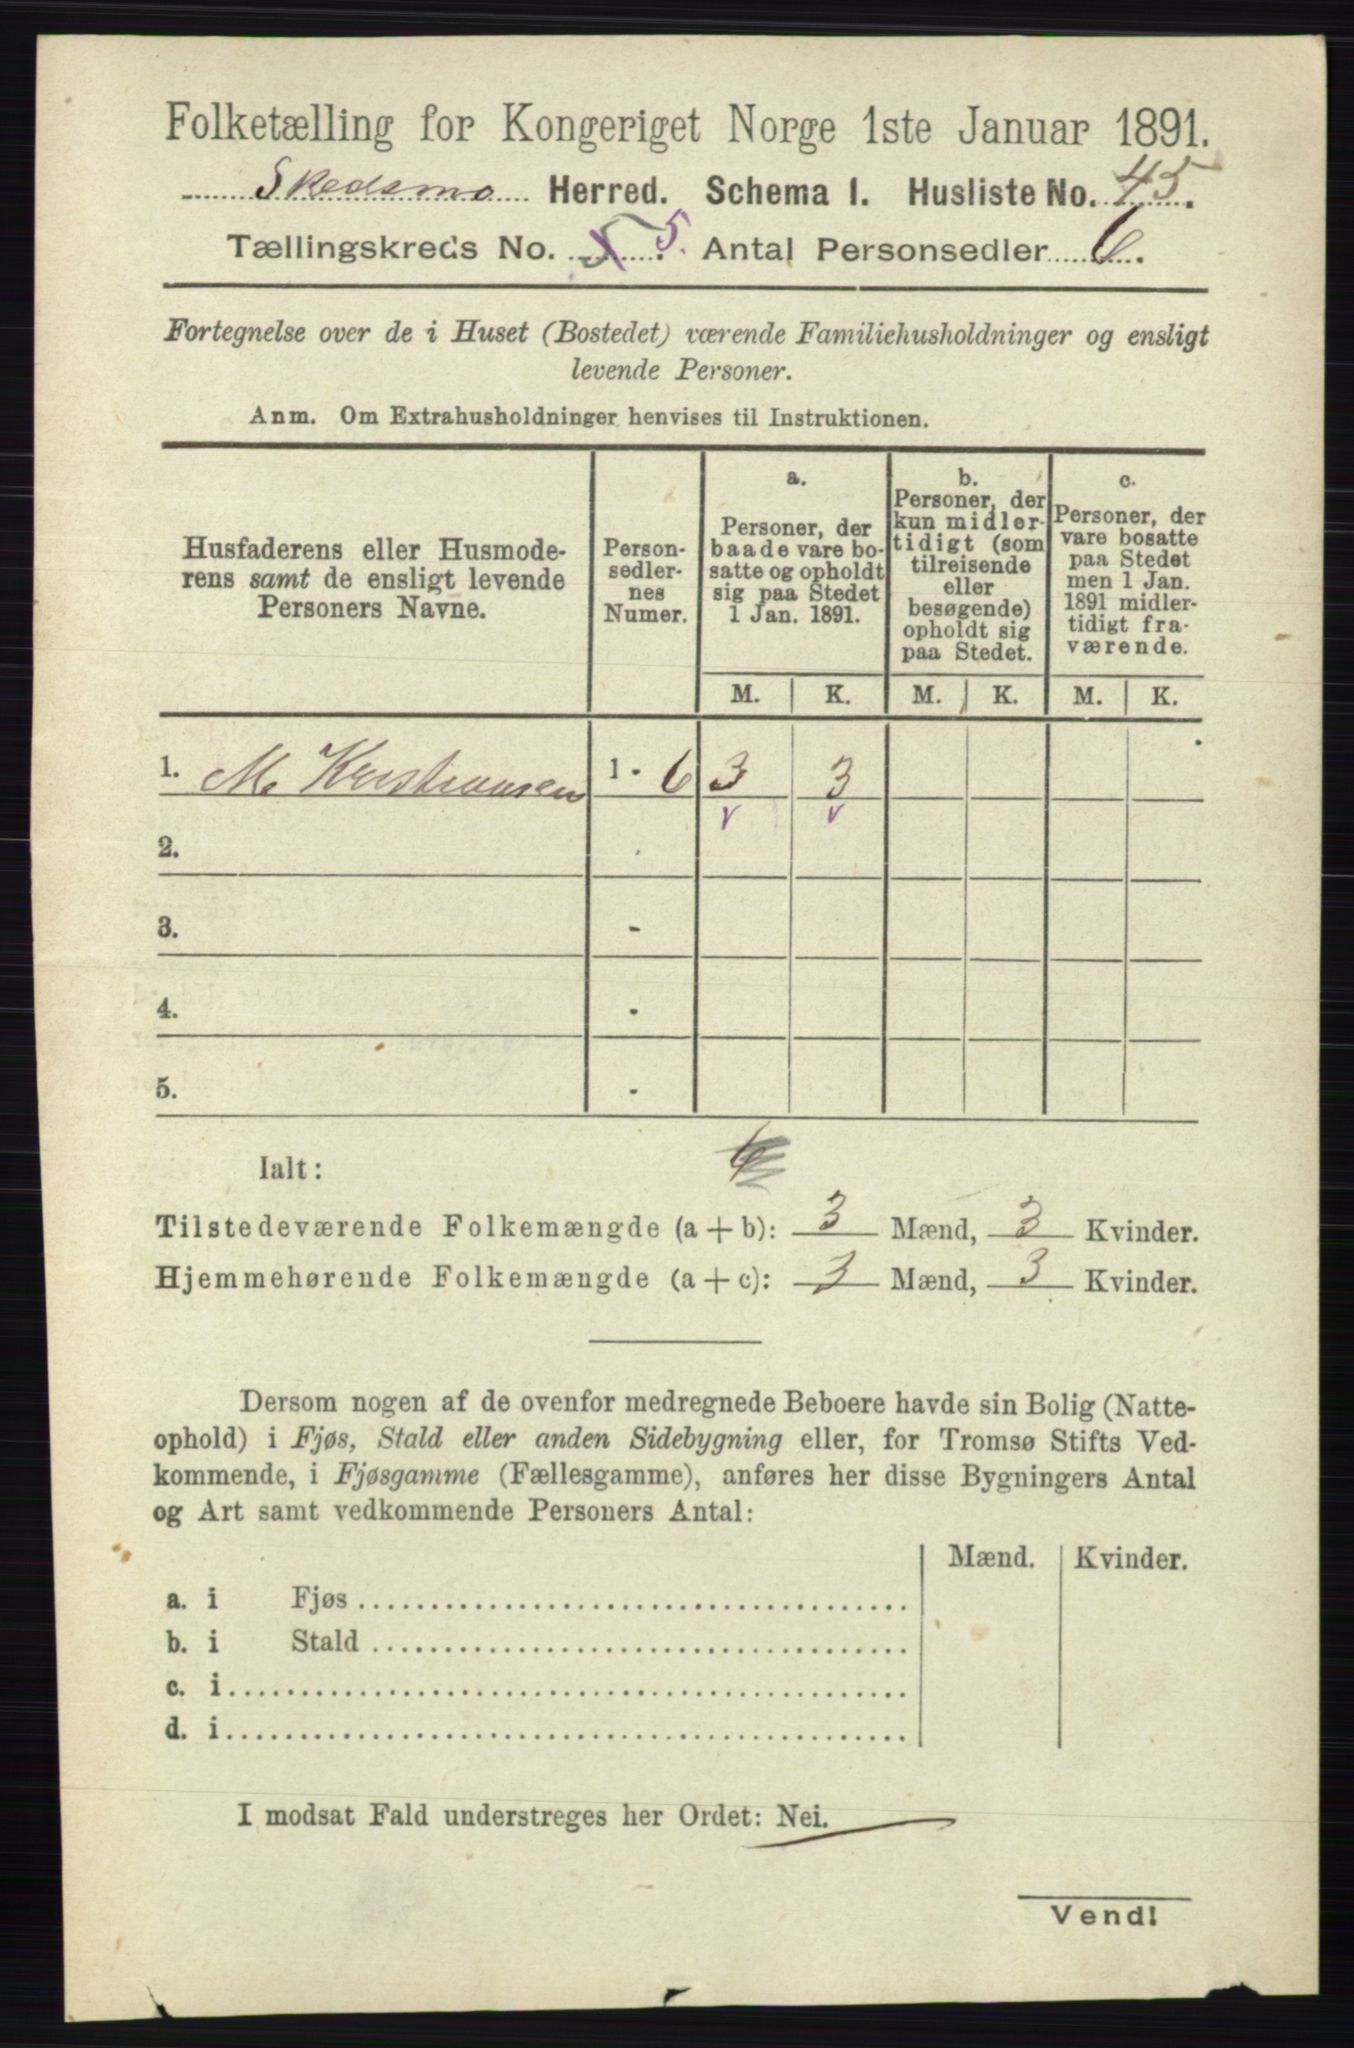 Folketælling for Kongeriget Norge 1ste Januar 1891.
Skedsmo Herred. Schema I. Husliste No. 45.
Tællingskreds No. 5 5. Antal Personsedler 6.
Fortegnelse over de i Huset (Bostedet) værende Familiehusholdninger og ensligt
levende Personer.
Anm. Om Extrahusholdninger henvises til Instruktionen.
Husfaderens eller Husmode-
rens samt de ensligt levende
Personers Navne.
Person-
sedler-
nes
Numer.
a.
Personer, der
baade vare bo-
satte og opholdt
sig paa Stedet
1 Jan. 1891.
b.
Personer, der
kun midler-
tidigt (som
tilreisende
eller
besøgende)
opholdt sig
paa Stedet.
c.
Personer, der
vare bosatte
paa Stedet
men 1 Jan.
1891 midler-
tidigt fra-
værende.
M. K. M. K. M. K.
1. M. Kristiansen 1 - 6 3 3
v v
2. -
3. -
4. -
5. -
6
Ialt:
Tilstedeværende Folkemængde (a + b): 3 Mænd, 3 Kvinder.
Hjemmehørende Folkemængde (a + c): 3 Mænd, 3 Kvinder.
Dersom nogen af de ovenfor medregnede Beboere havde sin Bolig (Natte-
ophold) i Fjøs, Stald eller anden Sidebygning eller, for Tromsø Stifts Ved-
kommende, i Fjøsgamme (Fællesgamme), anføres her disse Bygningers Antal
og Art samt vedkommende Personers Antal:
Mænd. Kvinder.
a. i Fjøs
b. i Stald
c. i
d. i
I modsat Fald understreges her Ordet: Nei.
Vend!